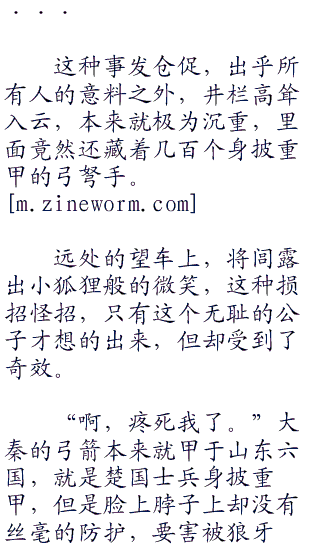 ...
这种事发仓促，出乎所
有人的意料之外，井栏高耸
入云，本来就极为沉重，里
面竟然还藏着几百个身披重
甲的弓弩手。
[m.zineworm.com]
远处的望车上，将闾露
出小狐狸般的微笑，这种损
招怪招，只有这个无耻的公
子才想的出来，但却受到了
奇效。
“啊，疼死我了。”大
秦的弓箭本来就甲于山东六
国，就是楚国士兵身披重
甲，但是脸上脖子上却没有
丝毫的防护，要害被狼牙